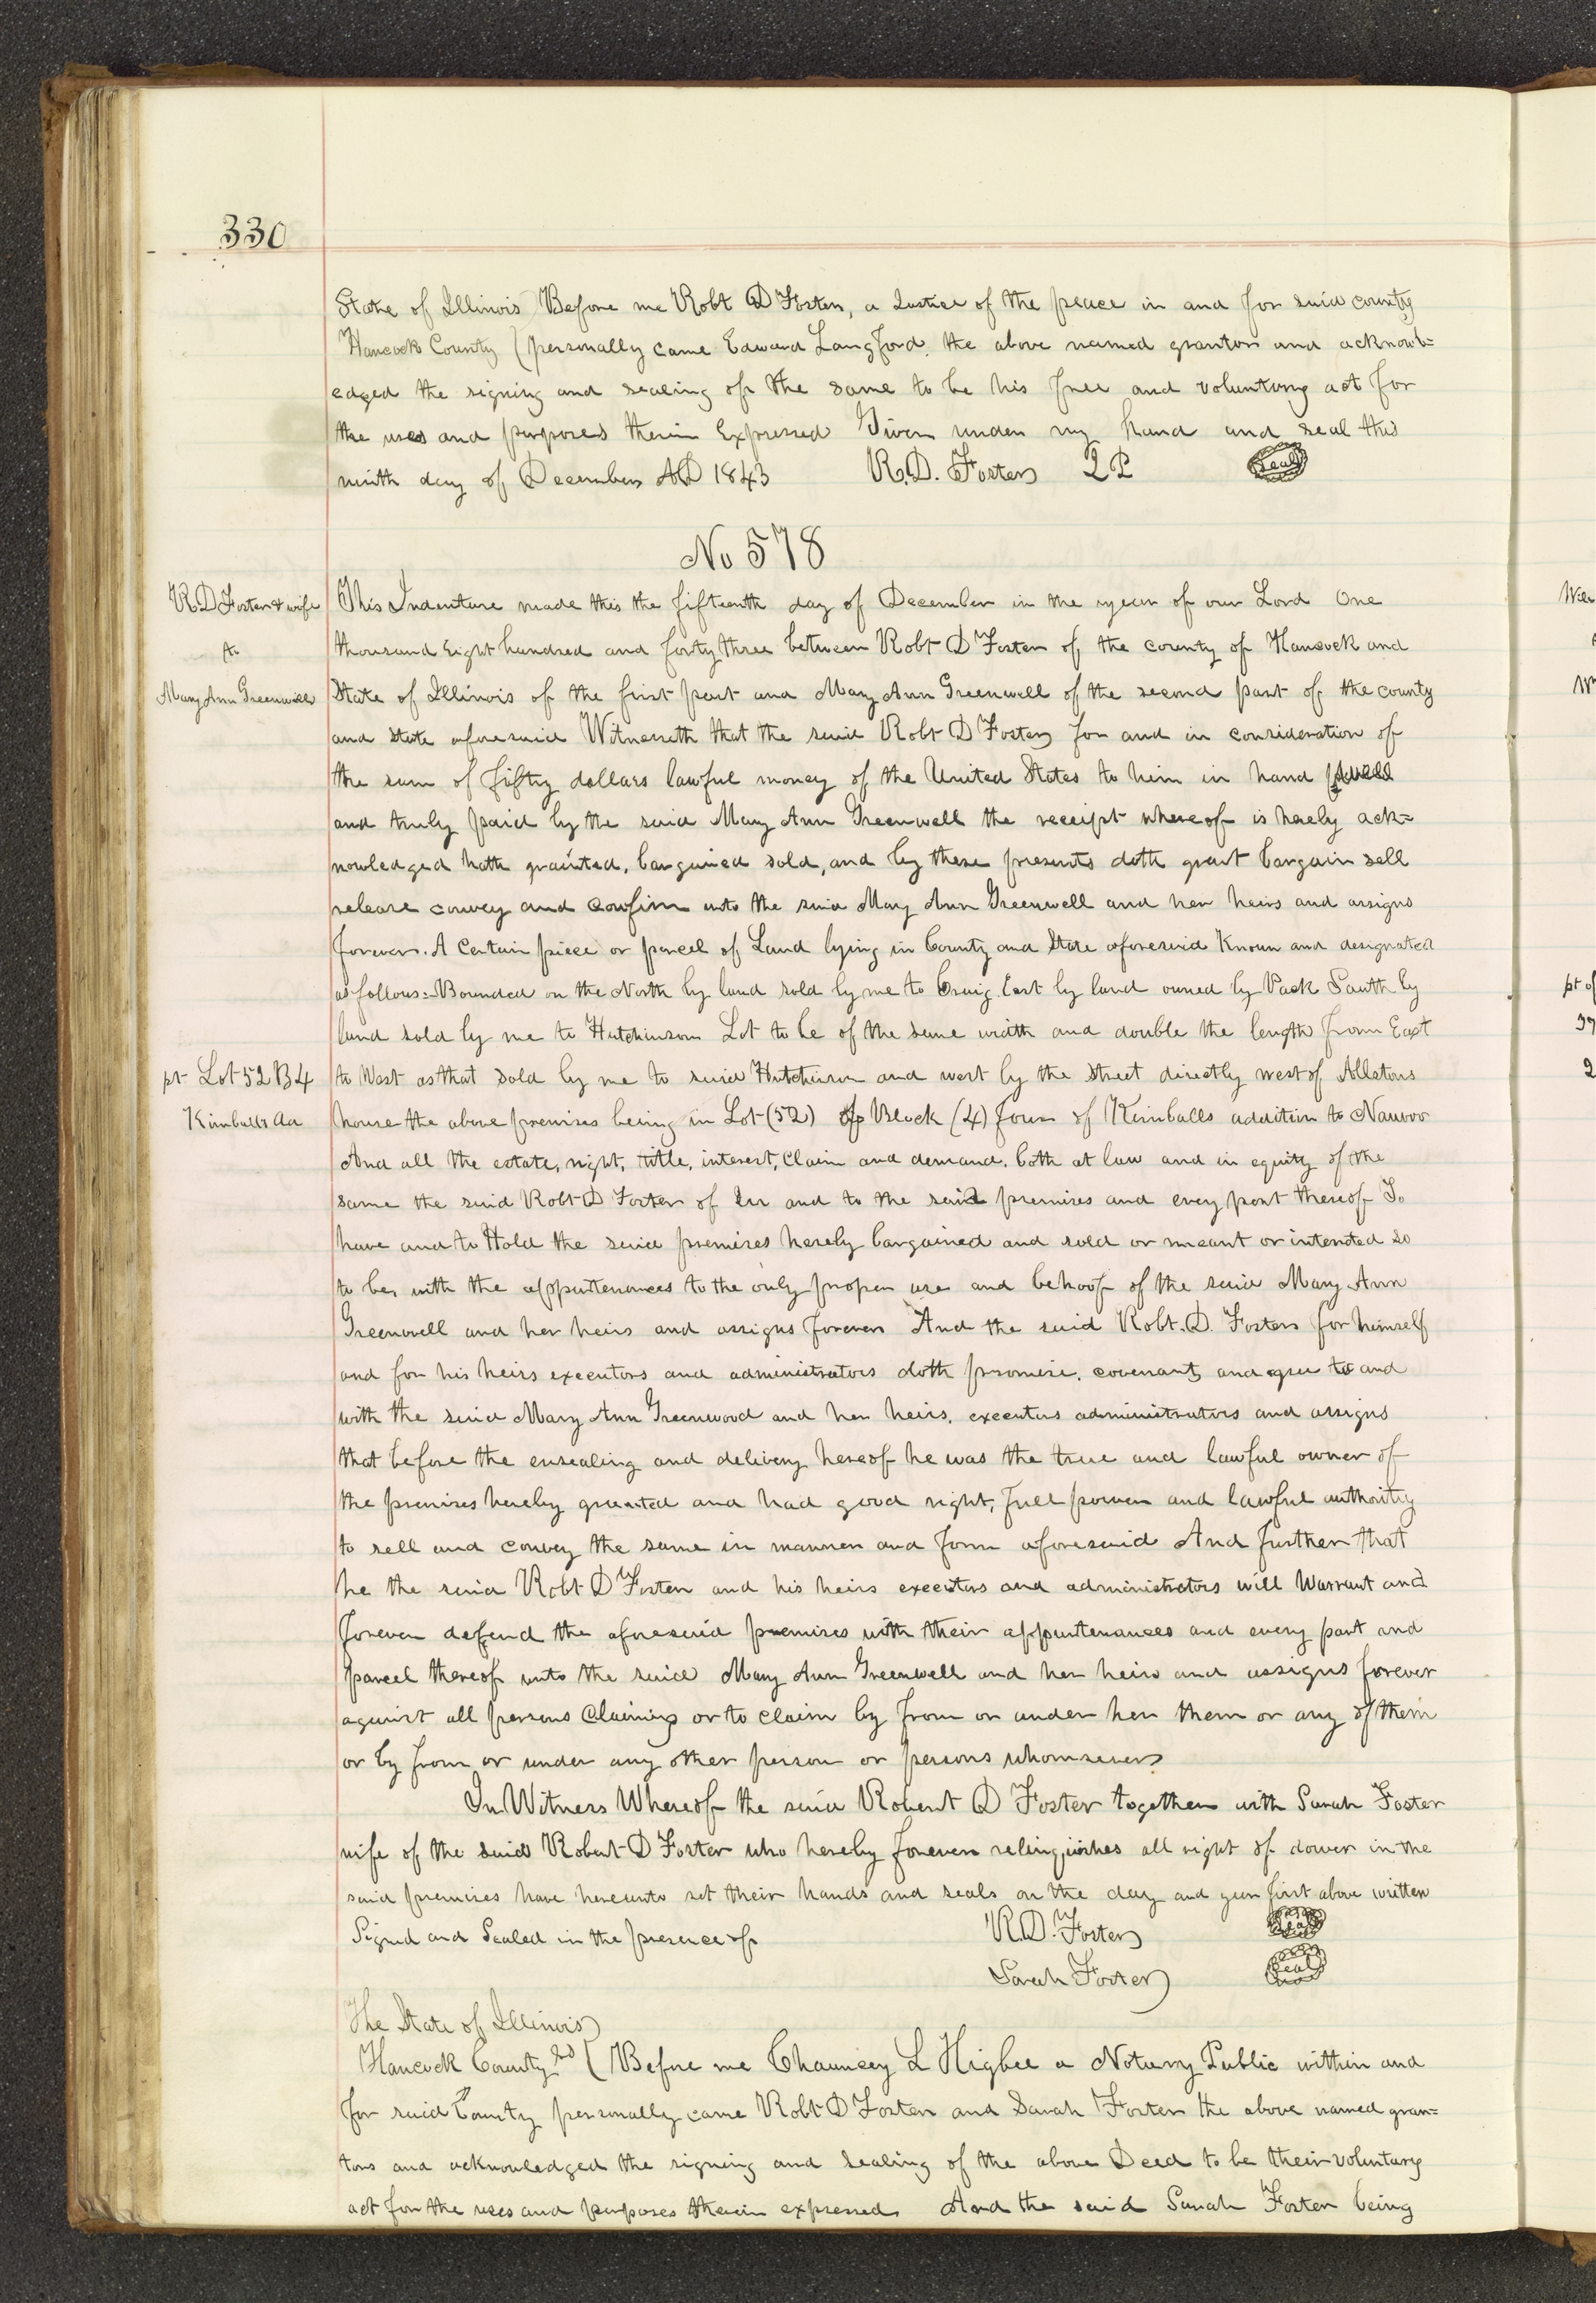 330
State of Illinois ) Before me Robt D Foster, a Justice of the peace in and for said county
Hancock County ( personally came Edward Langford, the above named grantor and acknowl=
edged the signing and sealing of the same to be his free and voluntary act for
the uses and purposes therein Expressed Given under my hand and seal this
ninth day of December AD 1843 R.D. Foster J P Seal
No 578
R D Foster & wife
to
Mary Ann Greenwell
This Indenture made this the fifteenth day of December in the year of our Lord One
thousand Eight hundred and forty three between Robt D Foster of the county of Hancock and
State of Illinois of the first part and Mary Ann Greenwell of the second part of the county
and State aforesaid Witnesseth that the said Robt D Foster for and in consideration of
the sum of fifty dollars lawful money of the United States to him in hand
and truly paid by the said Mary Ann Greenwell the receipt whereof is hereby ack=
nowledged hath granted, bargained sold, and by these presents doth grant bargain sell
release convey and confirm unto the said Mary Ann Greenwell and her heirs and assigns
forever. A Certain piece or parcel of Land lying in County and State aforesaid Known and designated
as follows:- Bounded on the North by land sold by me to Craig East by land owned by Pack South by
land sold by me to Hutchinson Lot to be of the same width and double the length from East
pt Lot 52 B 4
Kimballs Ad
to West as that sold by me to said Hutchinson and west by the Street directly west of Allstons
house the above premises being in Lot (52) of Block (4) four of Kimballs addition to Nauvoo
And all the estate, right, title, interest, Claim and demand, both at law and in equity of the
same the said Robt D Foster of in and to the said premises and every part thereof To
have and to Hold the said premises hereby bargained and sold or meant or intended so
to be, with the appurtenances to the only proper use and behoof of the said Mary Ann
Greenwell and her heirs and assigns forever And the said Robt. D. Foster for himself
and for his heirs executors and administrators doth promise, covenant, and agree to and
with the said Mary Ann Greenwood and her heirs, executors administrators and assigns
that before the ensealing and delivery hereof he was the true and lawful owner of
the premises hereby granted and had good right, full power and lawful authority
to sell and convey the same in manner and form aforesaid And further that
he the said Robt D Foster and his heirs executors and administrators will Warrant and
forever defend the aforesaid premises with their appurtenances and every part and
parcel thereof unto the said Mary Ann Greenwell and her heirs and assigns forever
against all persons Claiming or to claim by from or under her them or any of them
or by from or under any other person or persons whomsoever
In Witness Whereof the said Robert D Foster together with Sarah Foster
wife of the said Robert D Foster who hereby forever relinquishes all right of dower in the
said premises have hereunto set their hands and seals on the day and year first above written
Signed and Sealed in the presence of R.D. Foster Seal
Sarah Foster Seal
The State of Illinois )
Hancock County SS ( Before me Chauncey L Higbee a Notary Public within and
for said County personally came Robt D Foster and Sarah Foster the above named gran=
tors and acknowledged the signing and sealing of the above Deed to be their voluntary
act for the uses and purposes therein expressed And the said Sarah Foster being
pt of